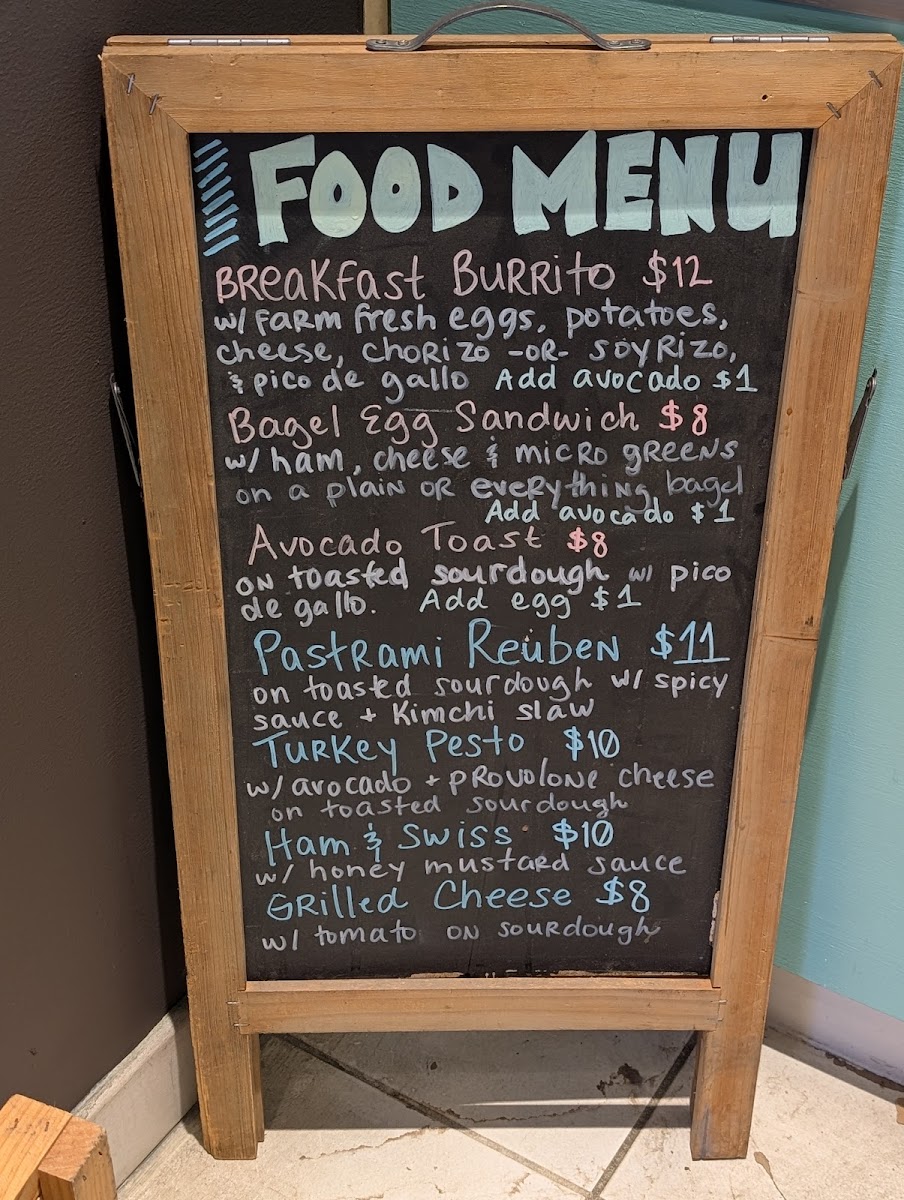 FOOD MENU
BREAKFAST BURRITO $12
w/ FARM fresh eggs, potatoes,
cheese, CHORIZO -OR- SOYRIZO,
& pico de gallo Add avocado $1
Bagel Egg Sandwich $8
w/ ham, cheese & MICRO GREENS
on a plain OR everything bagel
Add avocado $1
Avocado Toast $8
on toasted sourdough w/ pico
de gallo. Add egg $1
Pastrami Reuben $11
on toasted sourdough w/ spicy
sauce + Kimchi slaw
Turkey Pesto $10
w/ avocado + PROVOLONE cheese
on toasted sourdough
Ham & Swiss $10
w/ honey mustard sauce
Grilled Cheese $8
w/ tomato on sourdough